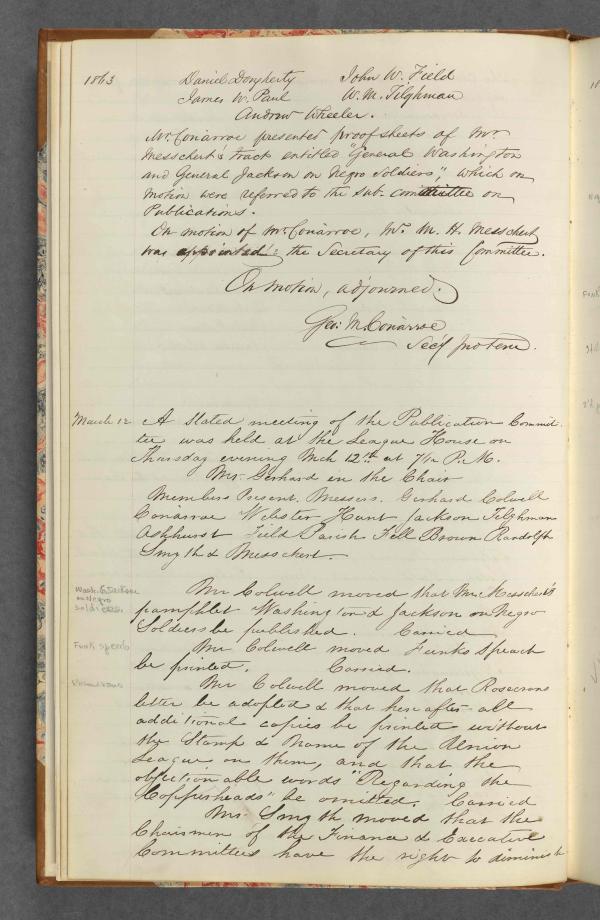 1863
Daniel Dougherty John W. Field
James W. Paul W. M. Tilghman
Andrew Wheeler.
Mr Conarroe presented proof sheets of Mr
Messchert's tract entitled "General Washington
and General Jackson on Negro Soldiers", which on
motion were referred to the Sub-committee on
Publications.
On motion of Mr Conarroe, Mr. M. H. Messchert
was appointed the Secretary of this Committee.
On motion, adjourned.
Geo: M. Conarroe
Secy pro tem.
March 12 A Stated meeting of the Publication Commit-
tee was held at the League House on
Thursday evening Mch 12th at 7½ P.M.
Mr. Gerhard in the Chair
Members Present. Messers. Gerhard Colwell
Conarroe Webster Hunt Jackson Tilghman
Ashhurst Field Parish Fell Brown Randolph
Smyth & Messchert.
Wash & Jackson
on Negro
soldiers
Mr Colwell moved that Mr Messchert's
pamphlet Washington & Jackson on Negro
Soldiers be published. Carried
Funk speech
Mr Colwell moved Funks Speach
be printed. Carried.
Mr Colwell moved that Rosecrans
letter be adopted & that hereafter all
additional copies be printed without
the Stamp & Name of the Union
League on them, and that the
objectionable words "Regarding the
Copperheads" be omitted. Carried
Mr. Smyth moved that the
Chairmen of the Finance & Executive
Committees have the right to diminish